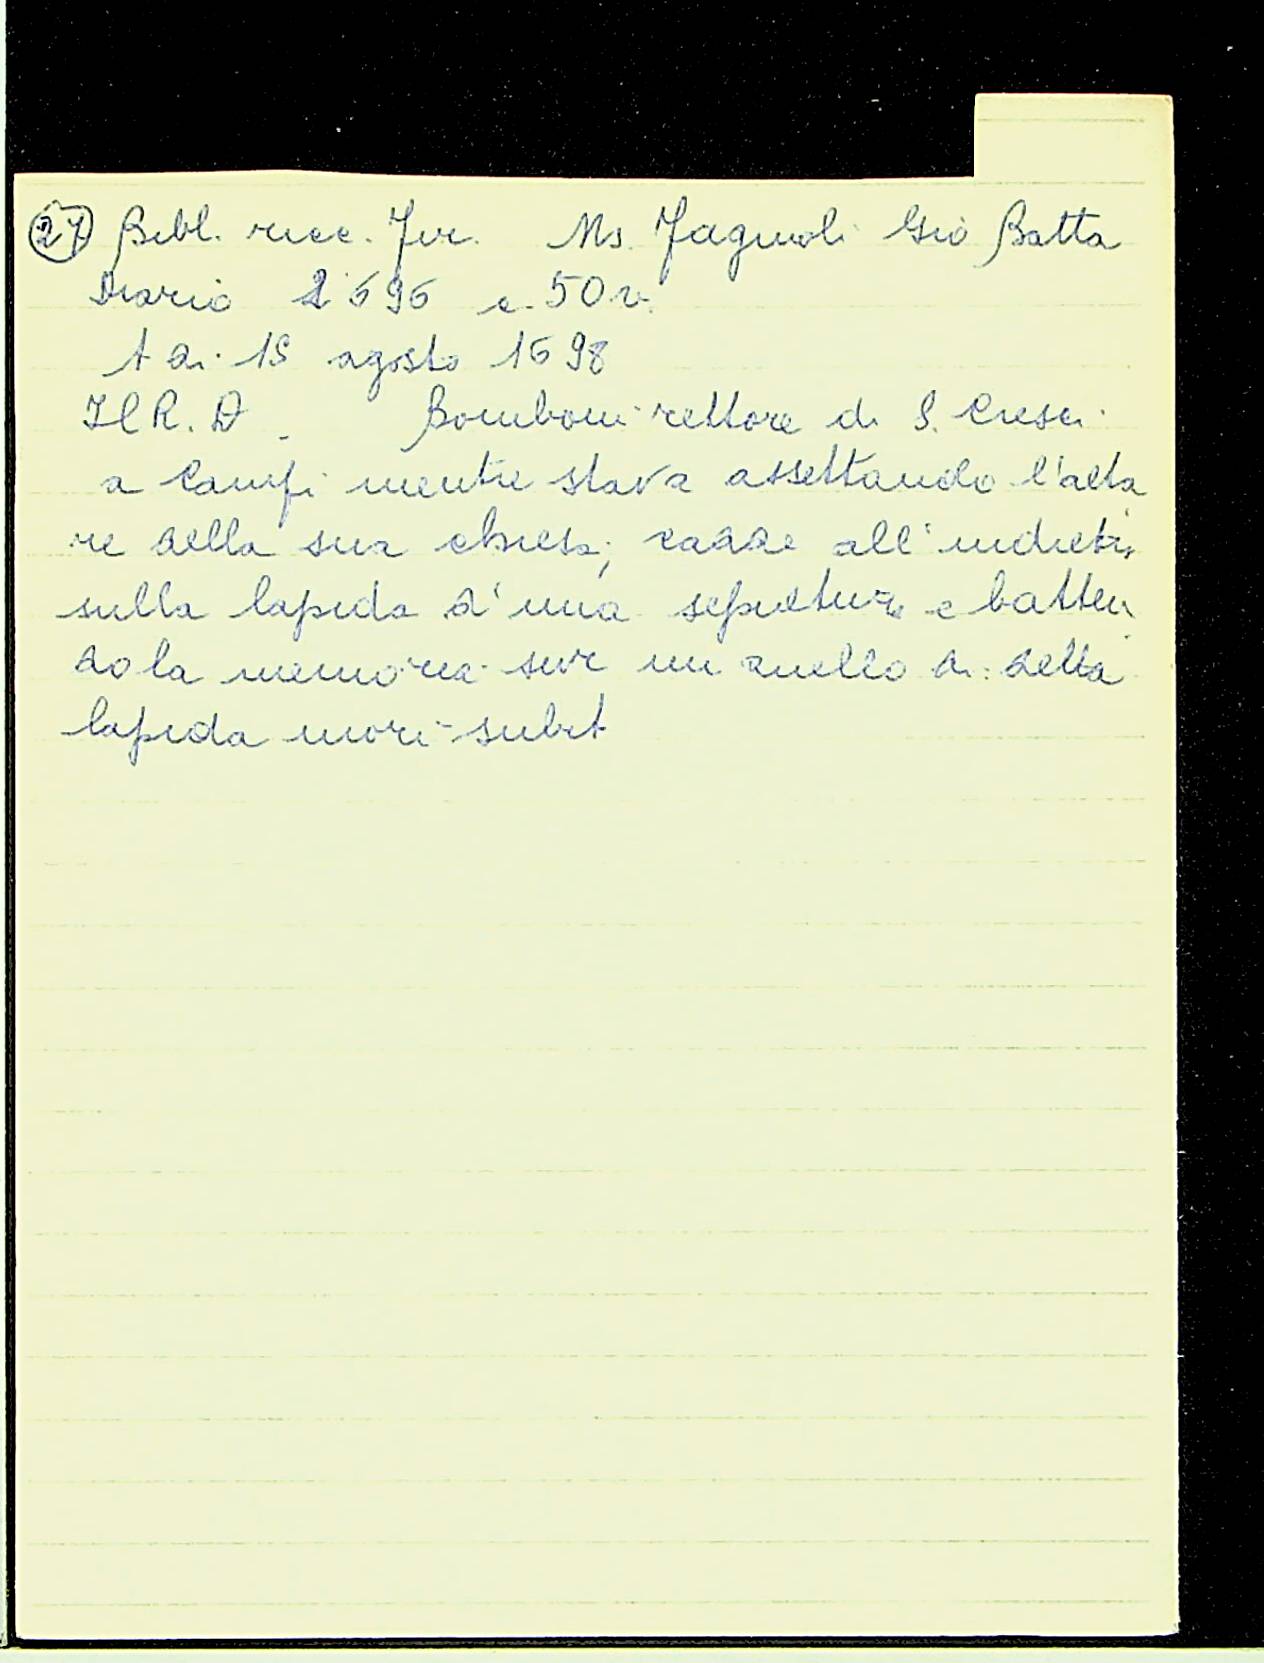 27 Bibl. ricc. Fir. Ms. Fagiuoli Gio Batta
Diario 2696 c. 50 v.
A di 15 agosto 1698
Il R. D. Bomboni rettore di S. Cresci
a Campi mentre stava assettando l'alta
re della sua chiesa, cadde all'indietro
sulla lapida d'una sepoltura e batten
do la memoria sur un anello di detta
lapida morì subit